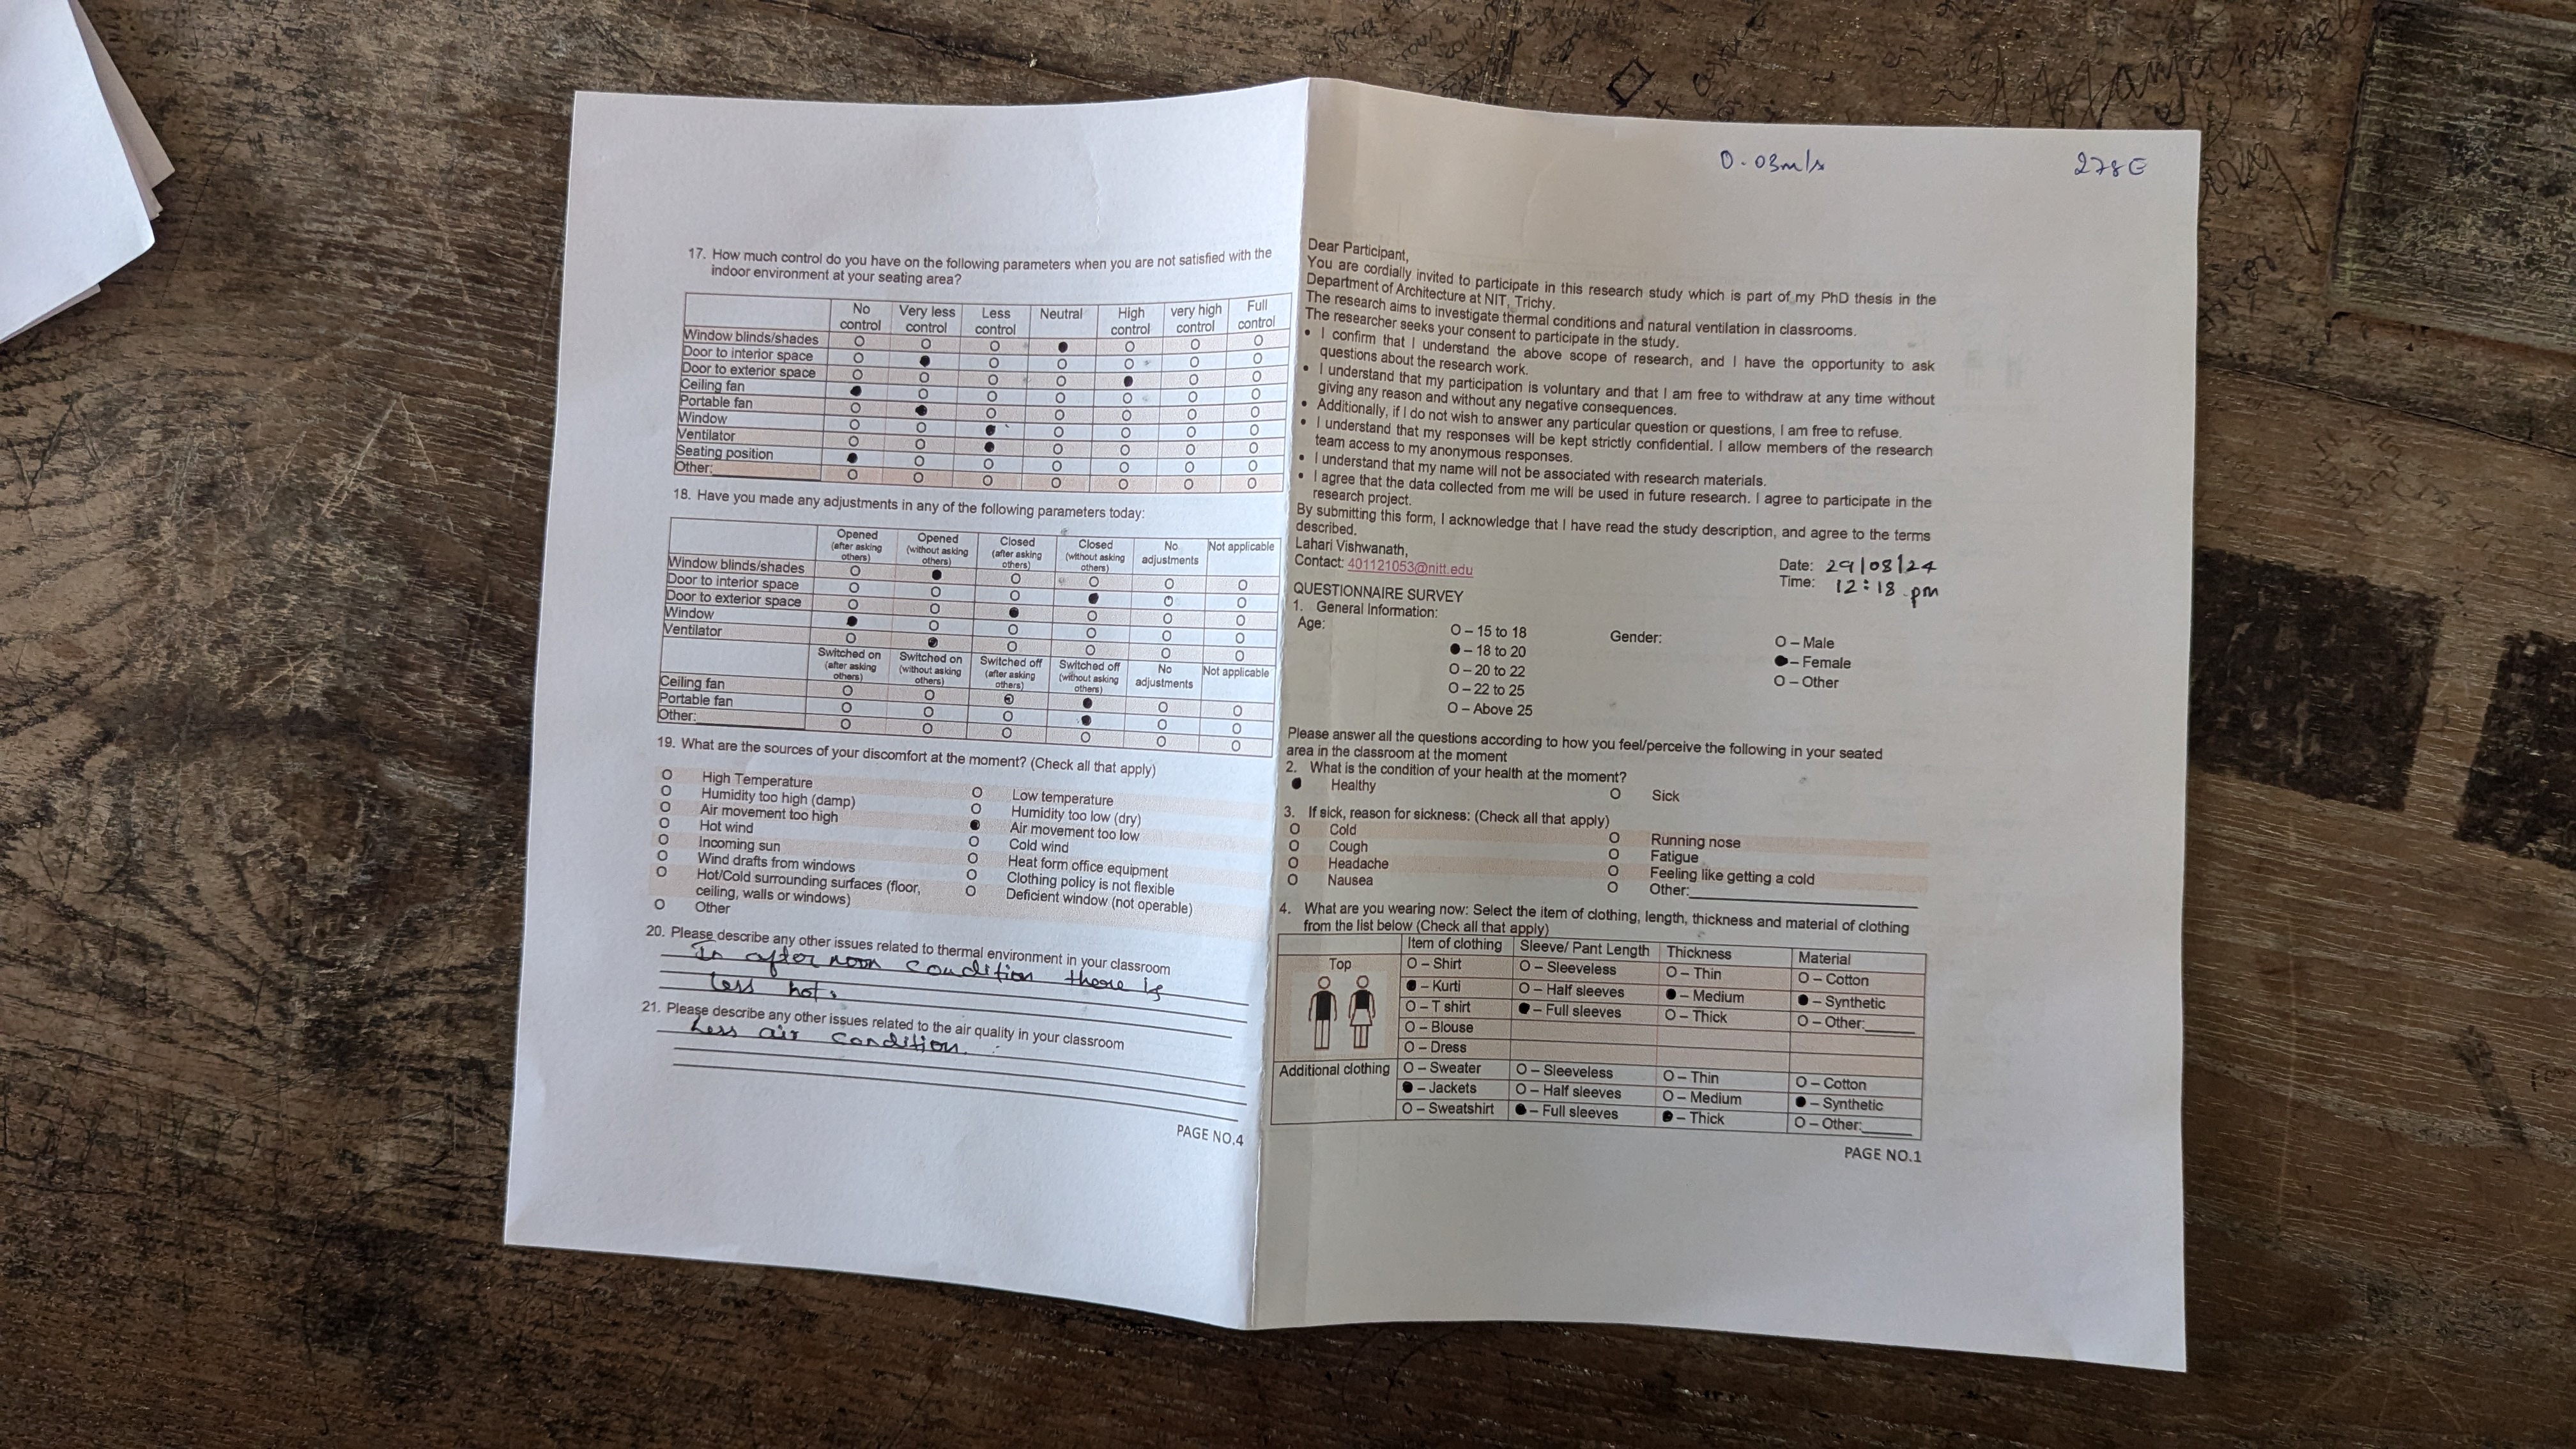 17. How much control do you have on the following parameters when you are not satisfied with the
indoor environment at your seating area?
No control Very less control Less control Neutral High control very high control Full control
Window blinds/shades O O O ● O O O
Door to interior space O ● O O O O O
Door to exterior space O O O O ● O O
Ceiling fan ● O O O O O O
Portable fan O ● O O O O O
Window O O ● O O O O
Ventilator O O ● O O O O
Seating position ● O O O O O O
Other: O O O O O O O
18. Have you made any adjustments in any of the following parameters today:
Opened (after asking others) Opened (without asking others) Closed (after asking others) Closed (without asking others) No adjustments Not applicable
Window blinds/shades O ● O O O O
Door to interior space O O O ● O O
Door to exterior space O O ● O O O
Window ● O O O O O
Ventilator O ● O O O O
Switched on (after asking others) Switched on (without asking others) Switched off (after asking others) Switched off (without asking others) No adjustments Not applicable
Ceiling fan O O O ● O O
Portable fan O O O ● O O
Other: O O O O O O
19. What are the sources of your discomfort at the moment? (Check all that apply)
O High Temperature O Low temperature
O Humidity too high (damp) O Humidity too low (dry)
O Air movement too high ● Air movement too low
O Hot wind O Cold wind
O Incoming sun O Heat form office equipment
O Wind drafts from windows O Clothing policy is not flexible
O Hot/Cold surrounding surfaces (floor, O Deficient window (not operable)
ceiling, walls or windows)
O Other
20. Please describe any other issues related to thermal environment in your classroom
In after noon condition there is
less hot.
21. Please describe any other issues related to the air quality in your classroom
Less air condition.
PAGE NO.4
0.03m/s 278E
Dear Participant,
You are cordially invited to participate in this research study which is part of my PhD thesis in the
Department of Architecture at NIT, Trichy.
The research aims to investigate thermal conditions and natural ventilation in classrooms.
The researcher seeks your consent to participate in the study.
• I confirm that I understand the above scope of research, and I have the opportunity to ask
questions about the research work.
• I understand that my participation is voluntary and that I am free to withdraw at any time without
giving any reason and without any negative consequences.
• Additionally, if I do not wish to answer any particular question or questions, I am free to refuse.
• I understand that my responses will be kept strictly confidential. I allow members of the research
team access to my anonymous responses.
• I understand that my name will not be associated with research materials.
• I agree that the data collected from me will be used in future research. I agree to participate in the
research project.
By submitting this form, I acknowledge that I have read the study description, and agree to the terms
described.
Lahari Vishwanath,
Contact: 401121053@nitt.edu
Date: 29/08/24
Time: 12:18 pm
QUESTIONNAIRE SURVEY
1. General Information:
Age: O – 15 to 18 Gender: O – Male
● – 18 to 20 ● – Female
O – 20 to 22 O – Other
O – 22 to 25
O – Above 25
Please answer all the questions according to how you feel/perceive the following in your seated
area in the classroom at the moment
2. What is the condition of your health at the moment?
● Healthy O Sick
3. If sick, reason for sickness: (Check all that apply)
O Cold O Running nose
O Cough O Fatigue
O Headache O Feeling like getting a cold
O Nausea O Other:
4. What are you wearing now: Select the item of clothing, length, thickness and material of clothing
from the list below (Check all that apply)
Item of clothing Sleeve/ Pant Length Thickness Material
Top O – Shirt O – Sleeveless O – Thin O – Cotton
● – Kurti O – Half sleeves ● – Medium ● – Synthetic
O – T shirt ● – Full sleeves O – Thick O – Other:
O – Blouse
O – Dress
Additional clothing O – Sweater O – Sleeveless O – Thin O – Cotton
● – Jackets O – Half sleeves O – Medium ● – Synthetic
O – Sweatshirt ● – Full sleeves ● – Thick O – Other:
PAGE NO.1